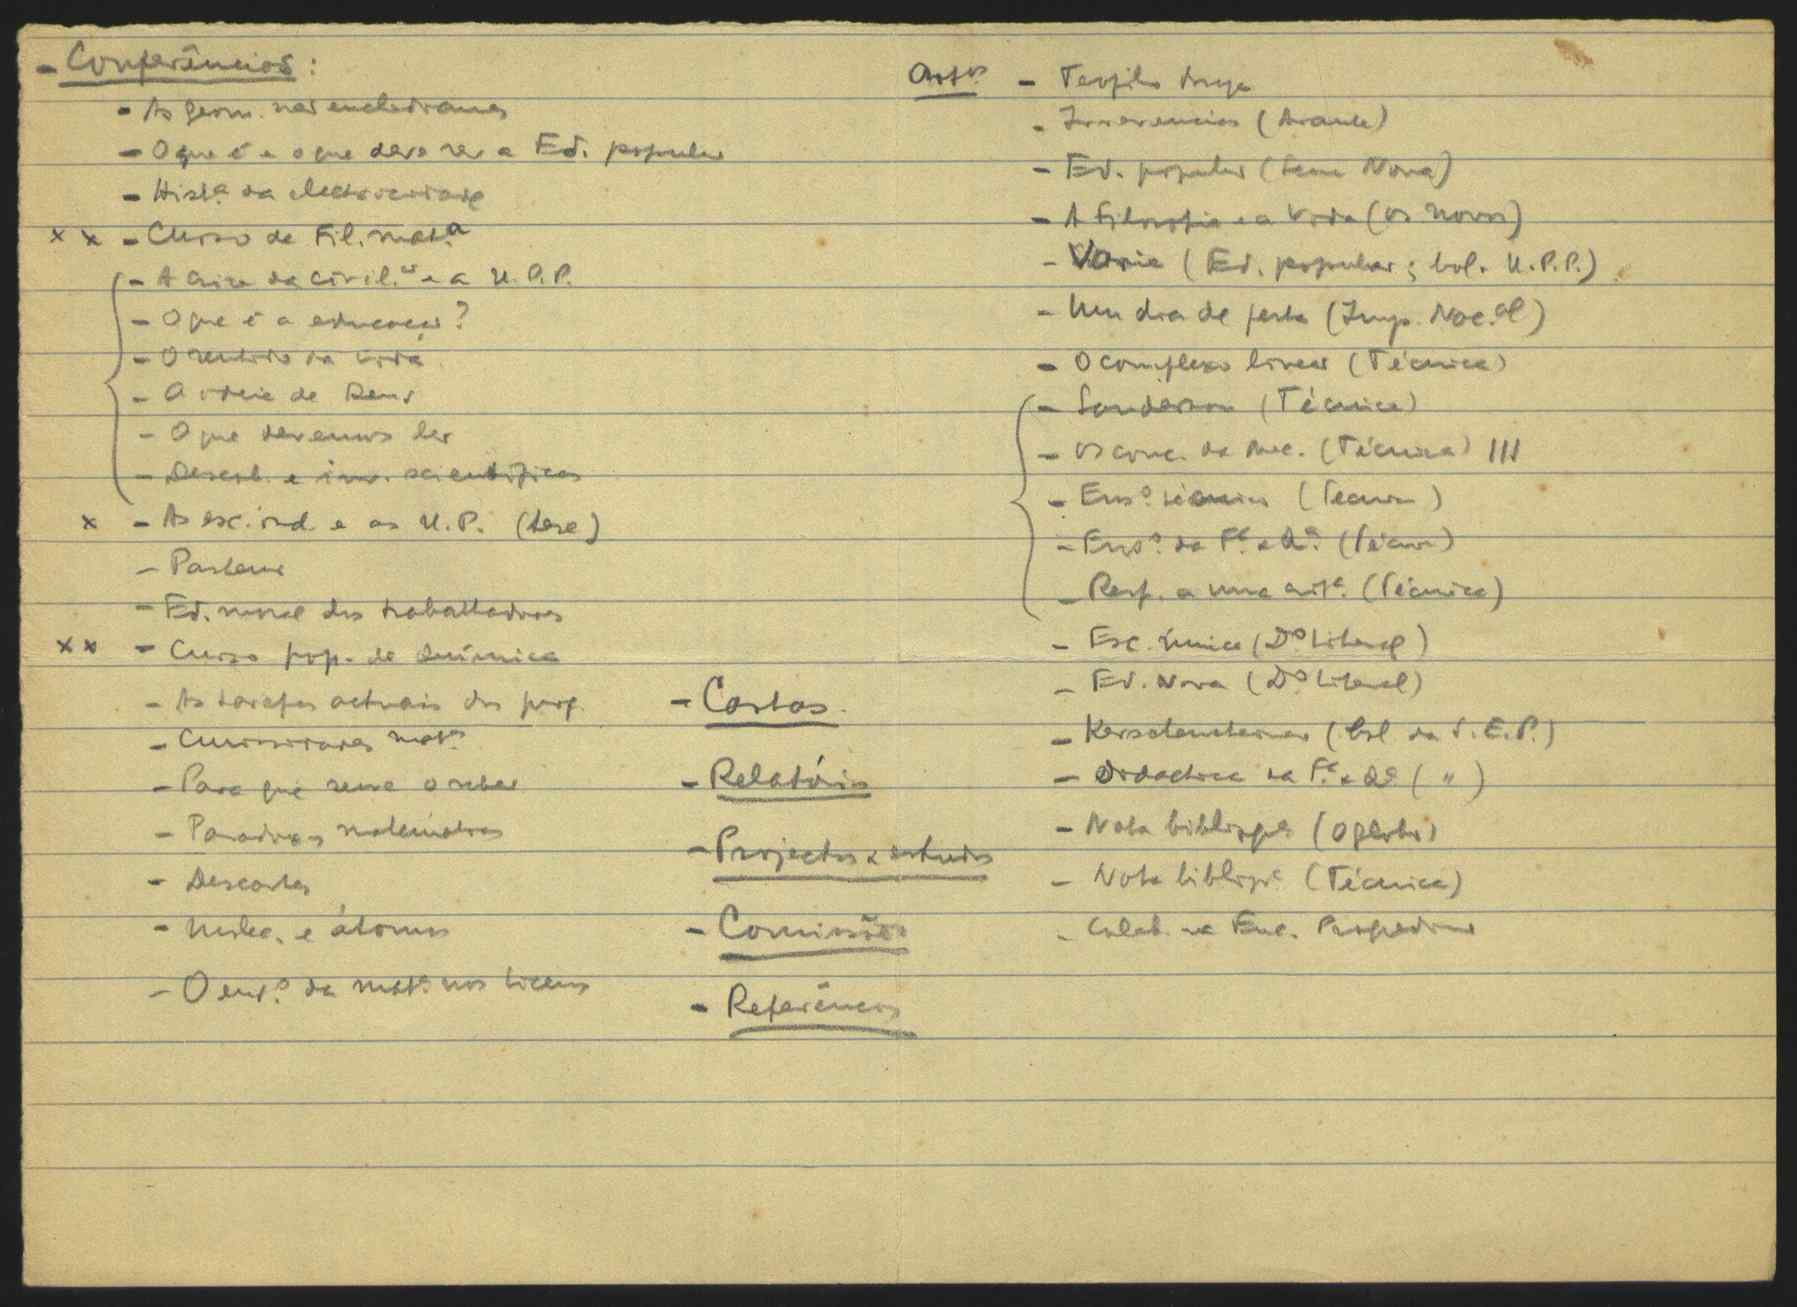 - Conferências:
- As geom. não euclidianas
- O que é e o que deve ser a Ed. popular
- Hist.ª da electricidade
x x - Curso de Fil. mat.ª
- A crise da civil. e a U.P.P.
- O que é a educação?
- O sentido da vida
- A ideia de Deus
- O que devemos ler
- Descob. e inv. scientificas
x - As esc. ind. e as U.P. (tese)
- Pasteur
- Ed. moral dos trabalhadores
x x - Curso pop. de Química
- As tarefas actuais dos prof.
- Curiosidades mat.
- Para que serve o saber
- Paradoxos matemáticos
- Descartes
- Moléc. e átomos
- O ens.º da mat.ª nos liceus
- Cartas.
- Relatórios
- Projectos e estudos
- Comissões
- Referências
Art.os - Teofilo Braga
- Irreverencias
- Ed. popular (Seara Nova)
- A Filosofia e a Vida (Os novos)
- Varia (Ed. popular; bol. U.P.P.)
- Um dia de festa (Imp. Nac.al)
- O complexo linear (Técnica)
- Sanderson (Técnica)
- Os conc. da Mec. (Técnica) III
- Ens.º técnico (Técnica)
- Ens.º da F.ca e Q.ca (Técnica)
- Resp. a uma crit.ª (Técnica)
- Esc. única (D.º Liberal)
- Ed. Nova (D.º Liberal)
- Kerschensteiner (bol. da S.E.P.)
- Didactica da F.ca e Q.ca ( " )
- Nota bibliogr.ª (O Globo)
- Nota bibliogr.ª (Técnica)
- Colab. na Enc.